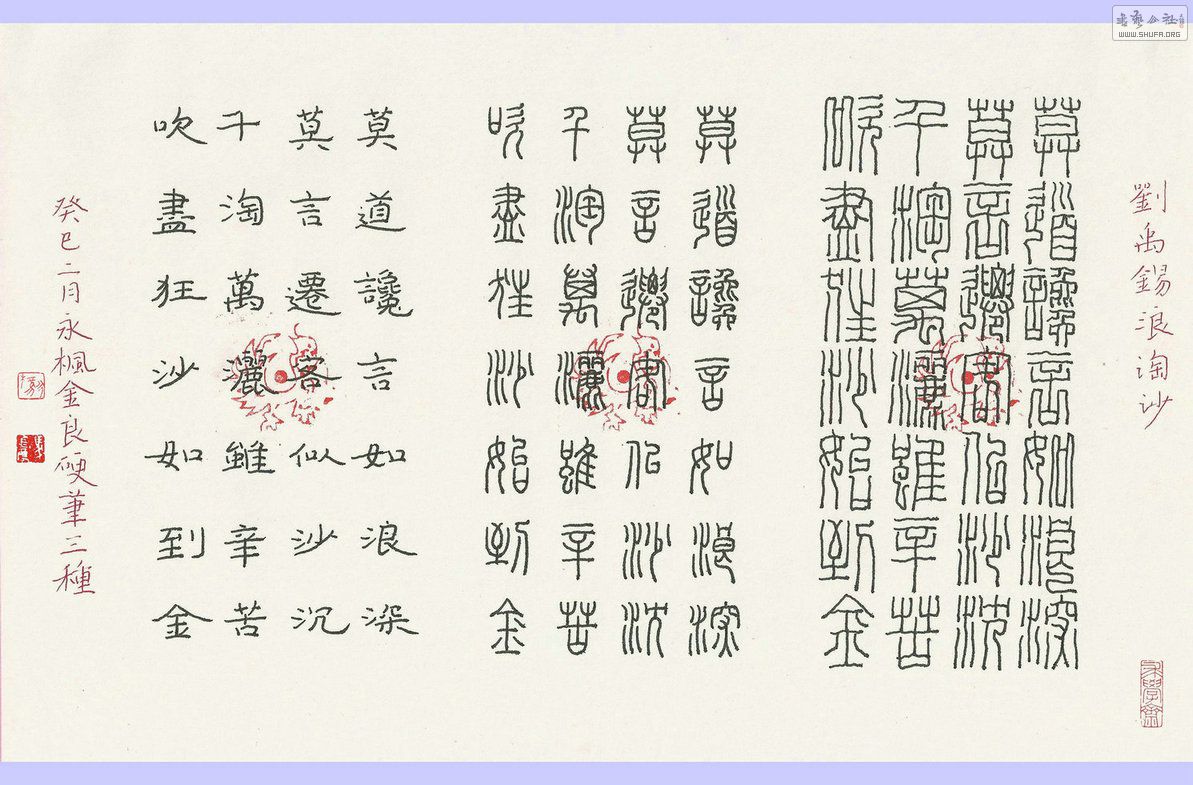 書藝公社
WWW.SHUFA.ORG
劉禹錫浪淘沙
莫道讒言如浪深
莫言遷客似沙沈
千淘萬灑雖辛苦
吹盡狂沙始到金
莫道讒言如浪深
莫言遷客似沙沈
千淘萬灑雖辛苦
吹盡狂沙始到金
莫道讒言如浪深
莫言遷客似沙沉
千淘萬灑雖辛苦
吹盡狂沙如到金
癸巳二月永楓金良硬筆三種